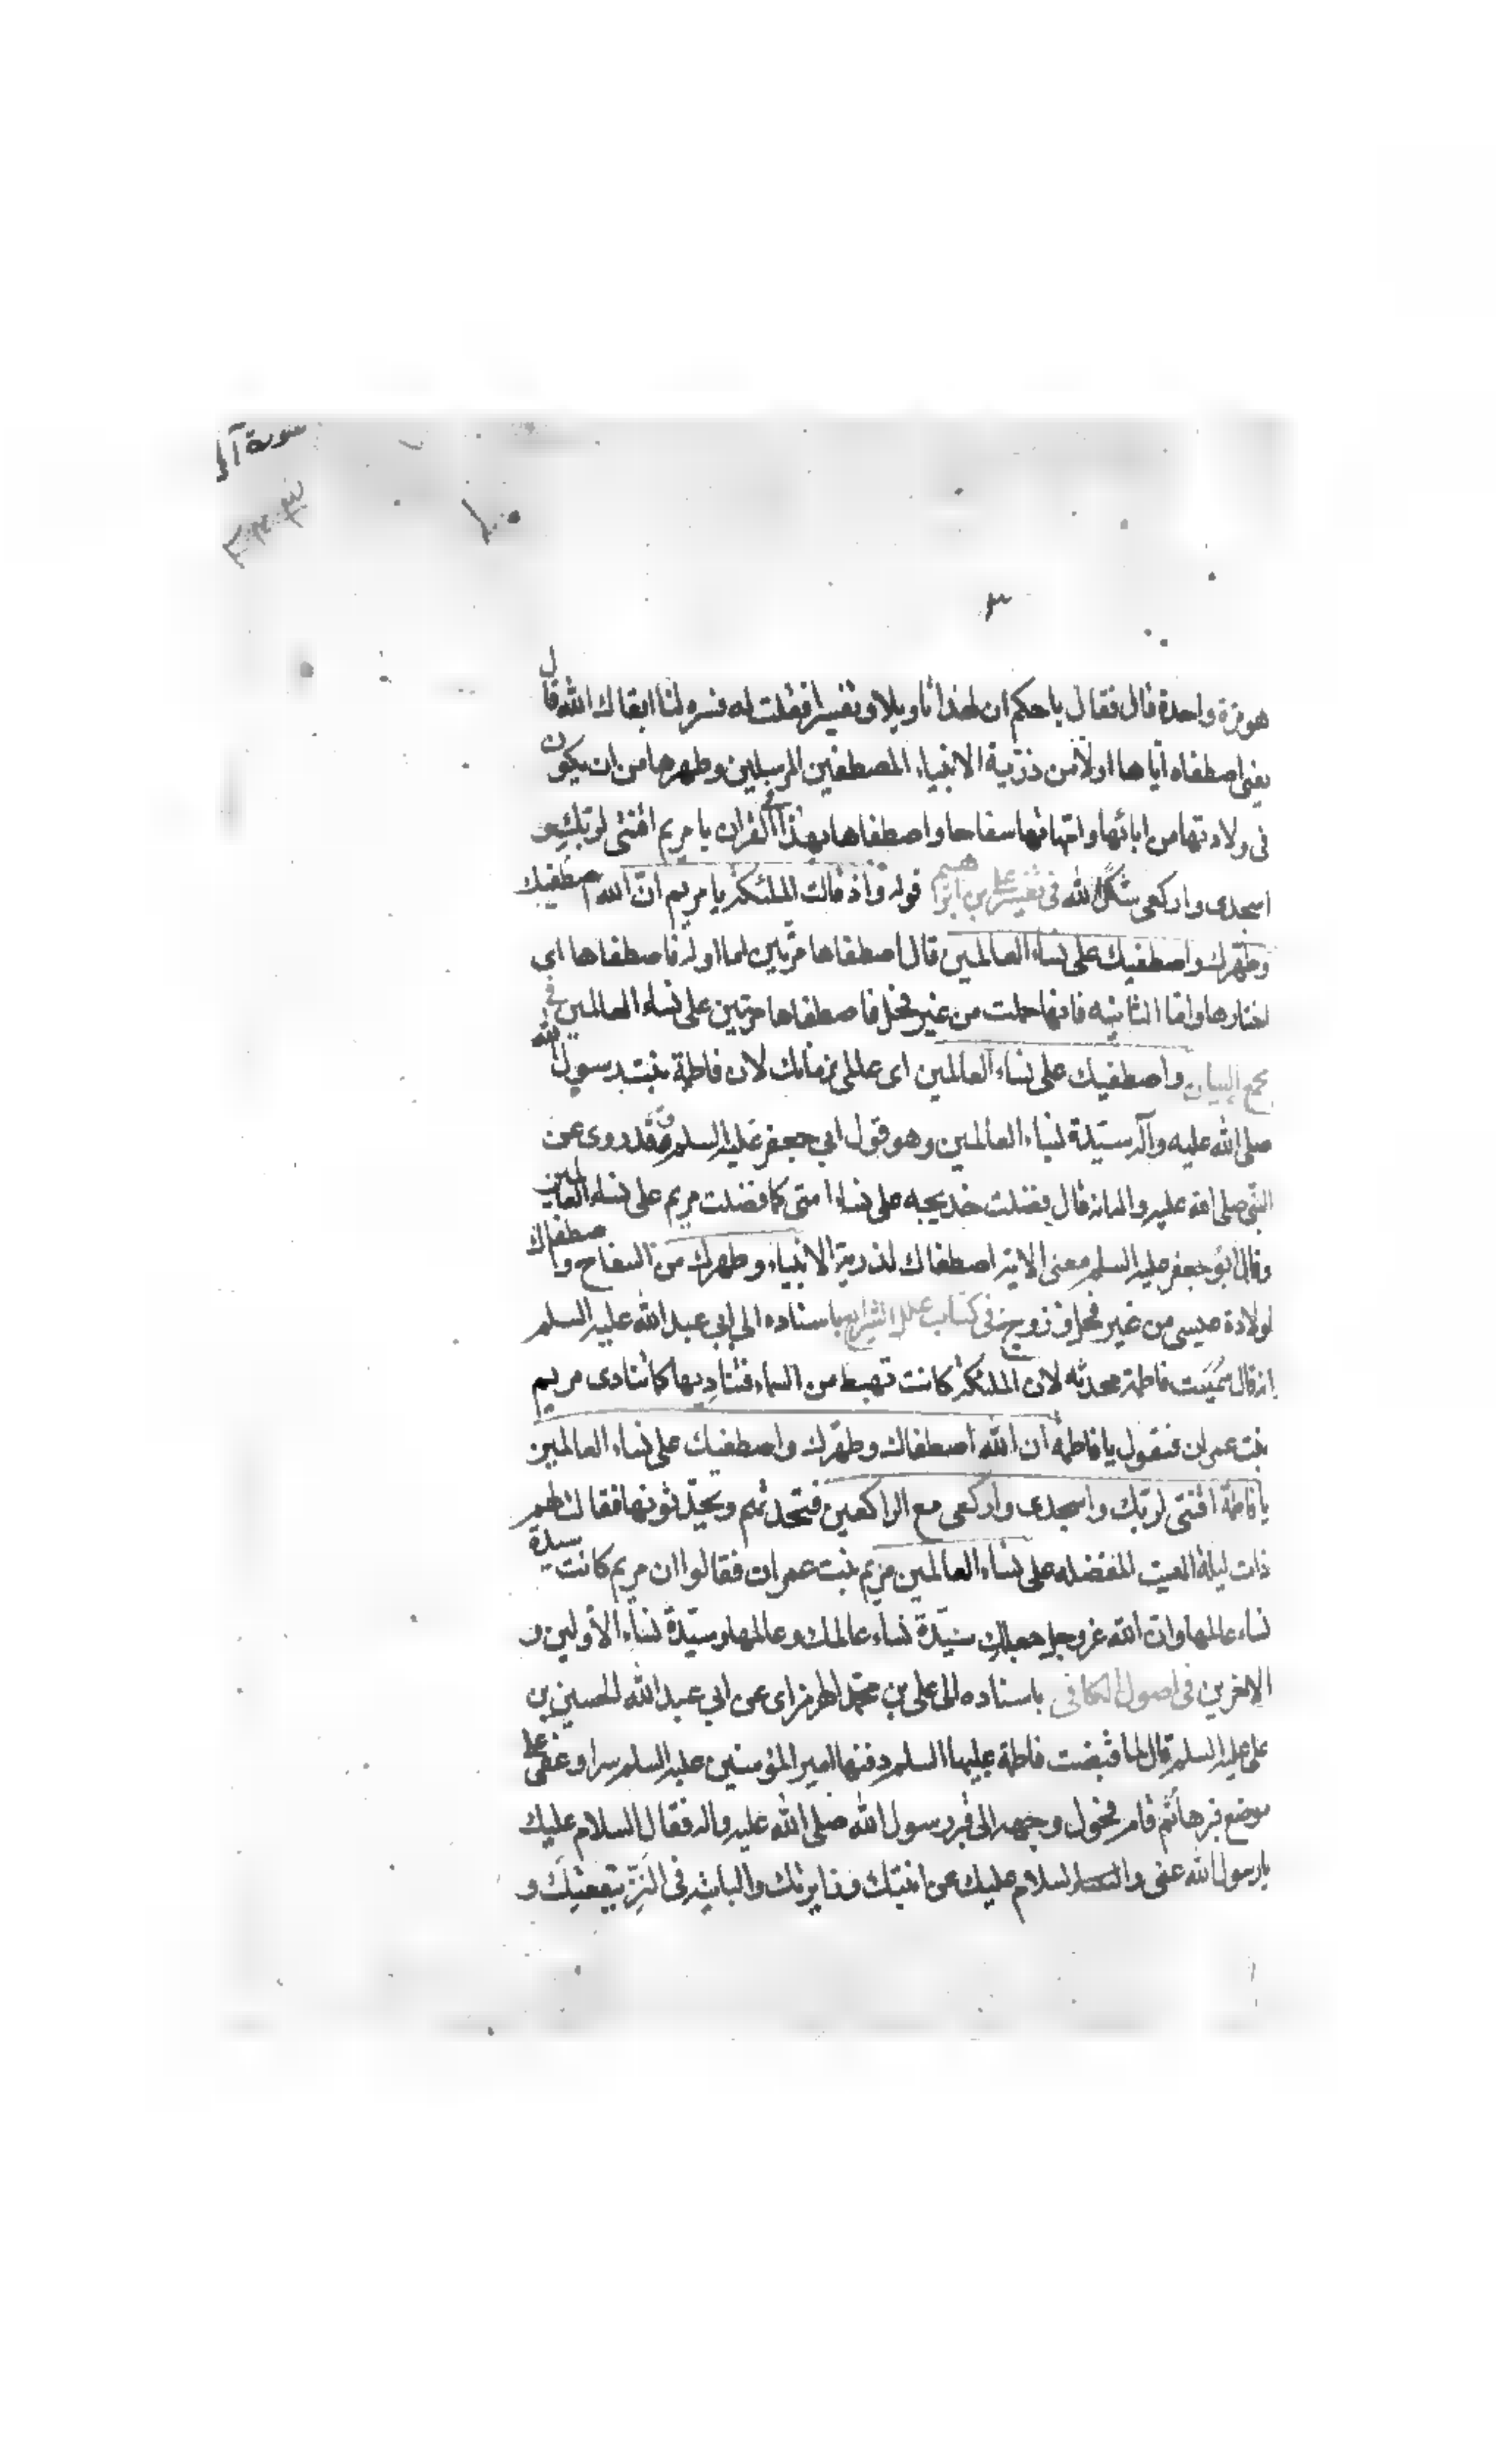 سورة آل
٣
هو مرة واحدة قال فقال يا حكم ان لهذا تاويلا وتفسيرا فقلت له فسره لنا ابقاك الله قال
يعنى اصطفاه اياها اولا من ذرية الانبياء المصطفين المرسلين وطهرها من ان يكون
فى ولادتها من ابائها وامهاتها سفاحا واصطفاها بهذا فى القران يا مريم اقنتى لربك و
اسجدى واركعى شكرا لله فى تفسير على بن ابراهيم قوله واذ قالت الملئكة يا مريم ان الله اصطفيك
وطهرك واصطفيك على نساء العالمين قال اصطفاها مرتين اما اوله فاصطفاها اى
اختارها واما الثانيه فانها حملت من غير فحل فاصطفاها مرتين على نساء العالمين فى
مجمع البيان واصطفيك على نساء العالمين اى عالمى زمانك لان فاطمة بنت رسول الله
صلى الله عليه وآله سيدة نساء العالمين وهو قول ابى جعفر عليه السلم وقد روى عن
النبى صلى الله عليه واله انه قال فضلت خديجه على نساء امتى كما فضلت مريم على نساء العالمين
وقال ابو جعفر عليه السلم معنى الاية اصطفاك لذرية الانبياء وطهرك من السفاح واصطفاك
لولادة عيسى من غير فحل وزوج فى كتاب علل الشرايع باسناده الى ابى عبد الله عليه السلم
انه قال سميت فاطمة محدثه لان الملئكة كانت تهبط من السماء فتناديها كما تنادى مريم
بنت عمران فتقول يا فاطمة ان الله اصطفاك وطهرك واصطفيك على نساء العالمين
يا فاطمة اقنتى لربك واسجدى واركعى مع الراكعين فتحدثهم ويحدثونها فقالت لهم
ذات ليلة اليست المفضله على نساء العالمين مريم بنت عمران فقالوا ان مريم كانت سيدة
نساء عالمها وان الله عز وجل جعلك سيدة نساء عالمك وعالمها وسيدة نساء الأولين و
الاخرين فى اصول الكافى باسناده الى على بن محمد الهرمزاى عن ابى عبد الله الحسين بن
على عليه السلم قال لما قبضت فاطمة عليها السلم دفنها امير المؤمنين عليه السلم سرا وعفى على
موضع قبرها ثم قام فحول وجهه الى قبر رسول الله صلى الله عليه واله فقال السلام عليك
يا رسول الله عنى والسلام عليك عن ابنتك وزايرتك والبايته فى الثرى ببقعتك و